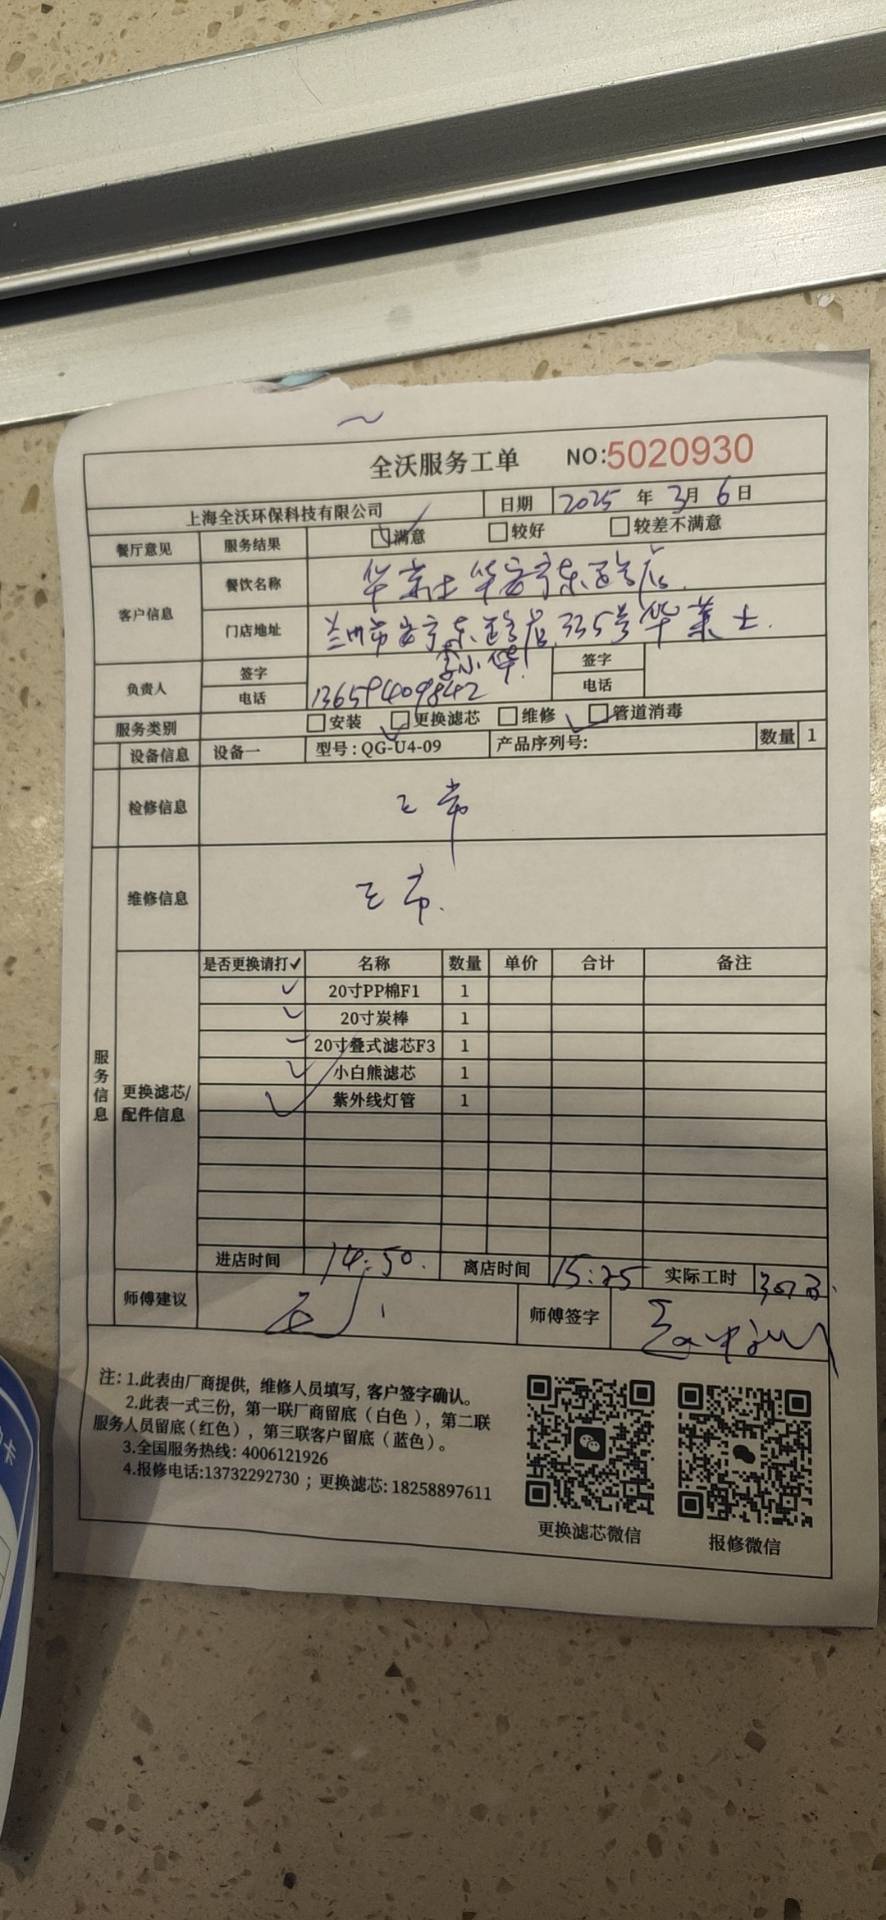 全沃服务工单 NO:5020930
上海全沃环保科技有限公司 日期 2025 年 3月 6日
餐厅意见 服务结果 ☑满意 □较好 □较差不满意
客户信息 餐饮名称 华莱士华安宁东路店
门店地址 兰州市安宁东路店335号华莱士.
负责人 签字 李小华 签字
电话 13659409842 电话
服务类别 □安装 ☑更换滤芯 □维修 ☑管道消毒
设备信息 设备一 型号:QG-U4-09 产品序列号: 数量 1
检修信息 正常
维修信息 正常.
服务信息
更换滤芯/配件信息
是否更换请打✓ 名称 数量 单价 合计 备注
✓ 20寸PP棉F1 1
✓ 20寸炭棒 1
✓ 20寸叠式滤芯F3 1
✓ 小白熊滤芯 1
✓ 紫外线灯管 1
进店时间 14:50. 离店时间 15:25 实际工时
师傅建议 师傅签字
注: 1.此表由厂商提供，维修人员填写, 客户签字确认。
2.此表一式三份，第一联厂商留底（白色），第二联
服务人员留底（红色），第三联客户留底（蓝色）。
3.全国服务热线: 4006121926
4.报修电话:13732292730；更换滤芯: 18258897611
更换滤芯微信 报修微信
卡